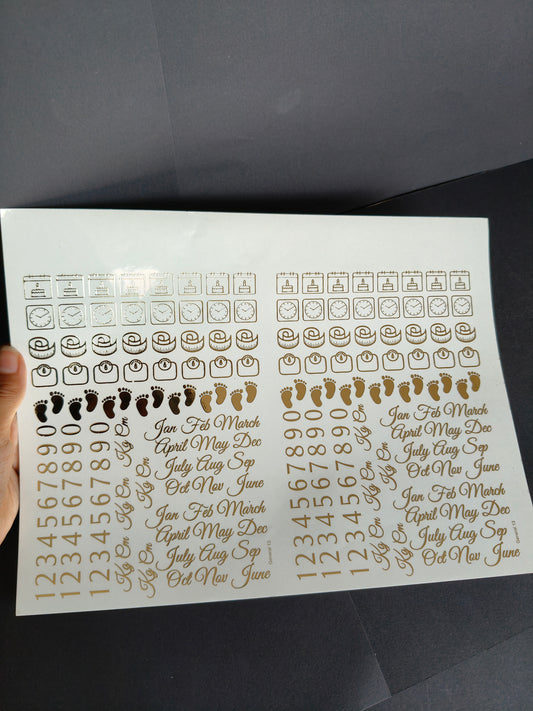 1234567890
1234567890
1234567890
Kg Cm Kg Cm Kg Cm
Kg Cm Kg Cm
Jan Feb March
April May Dec
July Aug Sep
Oct Nov June
Jan Feb March
April May Dec
July Aug Sep
Oct Nov June
General 13
1234567890
1234567890
1234567890
Kg Cm Kg Cm Kg Cm
Kg Cm Kg Cm
Jan Feb March
April May Dec
July Aug Sep
Oct Nov June
Jan Feb March
April May Dec
July Aug Sep
Oct Nov June
General 13